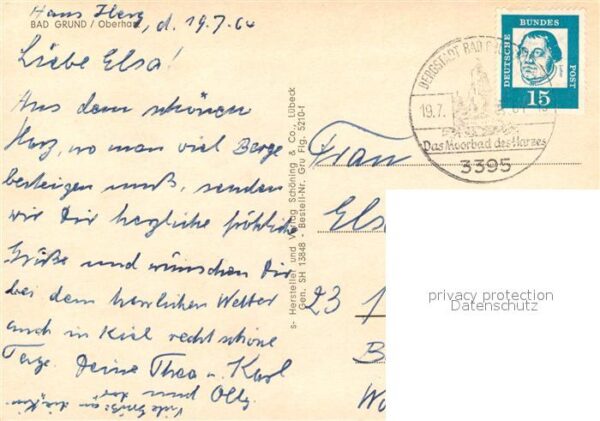 Haus Herz
BAD GRUND / Oberharz, d. 19.7.64
Liebe Elsa!
Aus dem schönen
Harz, wo man viel Berge
besteigen muß, senden
wir Dir herzliche fröhliche
Grüße und wünschen Dir
bei dem herrlichen Wetter
auch in Kiel recht schöne
Tage. Deine Thea u. Karl
Olly.
Viele Grüße an
s- Hersteller und Verlag Schöning & Co., Lübeck
Gen. SH 13848 - Bestell-Nr. Gru Flg. 5210-f
BERGSTADT BAD
19.7.
Das Moorbad des Harzes
3395
DEUTSCHE BUNDES POST
15
Frau
Els
23 1
B
Wo
privacy protection
Datenschutz